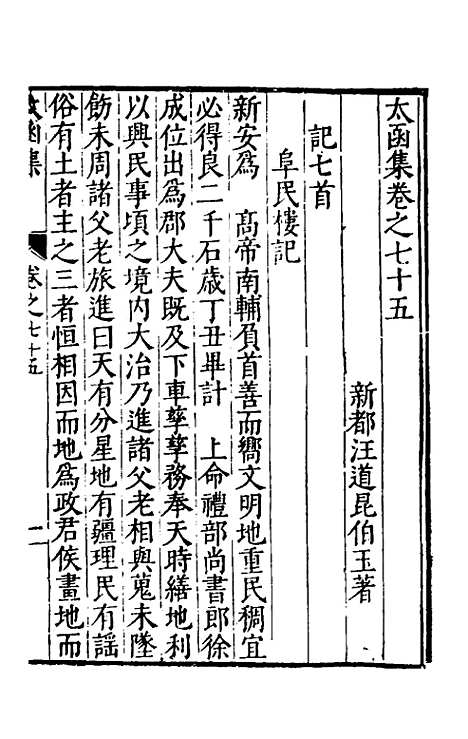 太函集卷之七十五
新都汪道昆伯玉著
記七首
阜民樓記
新安爲　髙帝南輔負首善而嚮文明地重民稠宜
必得良二千石歳丁丑畢計　上命禮部尚書郎徐
成位出爲郡大夫既及下車孳孳務奉天時繕地利
以興民事頃之境内大治乃進諸父老相與蒐未墜
飭未周諸父老旅進曰天有分星地有疆理民有謡
俗有土者主之三者恒相因而地爲政君侯畫地而
太函集　卷之七十五　一